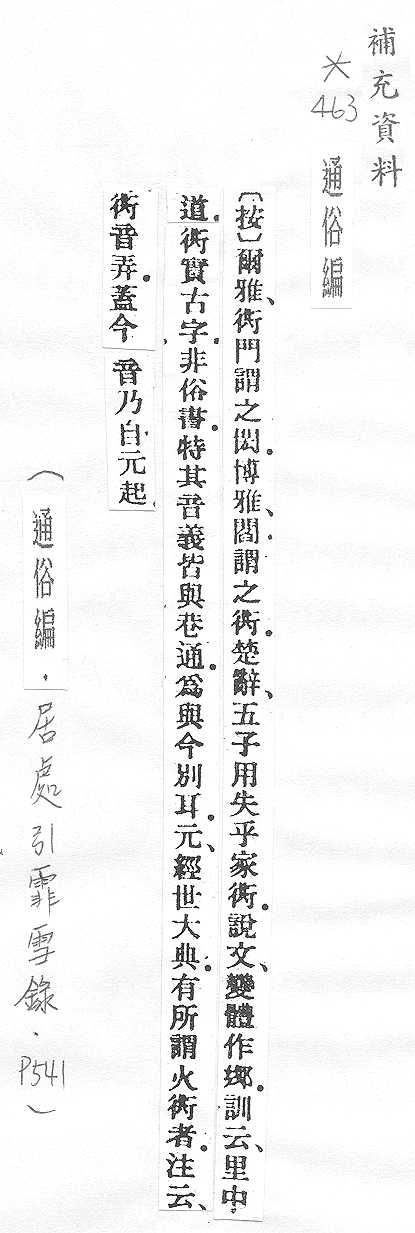 補充資料
*463 通俗編
〔按〕爾雅、衖門謂之閎。博雅、閻謂之衖。楚辭、五子用失乎家衖。說文、變體作。訓云、里中
道。衖實古字。非俗書。特其音義皆與巷通。爲與今別耳。元、經世大典。有所謂火衖者。注云、
衖音弄。蓋今 音乃自元起
(通俗編.居處引霏雪錄.P541)